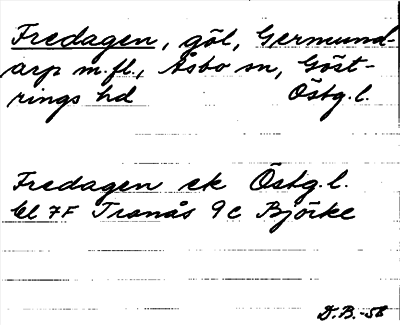 Fredagen, göl, Germund-
arp m.fl., Åsbo sn, Göst-
rings hd Östg.l.
Fredagen ek Östg.l.
bl 7F Tranås 9c Björke
D.B.-58